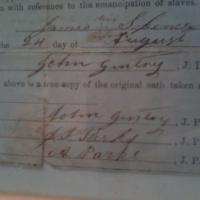 n with reference to the emancipation of slaves.
James Spence
the 24 day of August
John Ginloy , J. P
above is a true copy of the original oath taken a
John Ginloy , J. P
, J. P
A Parks , J. P